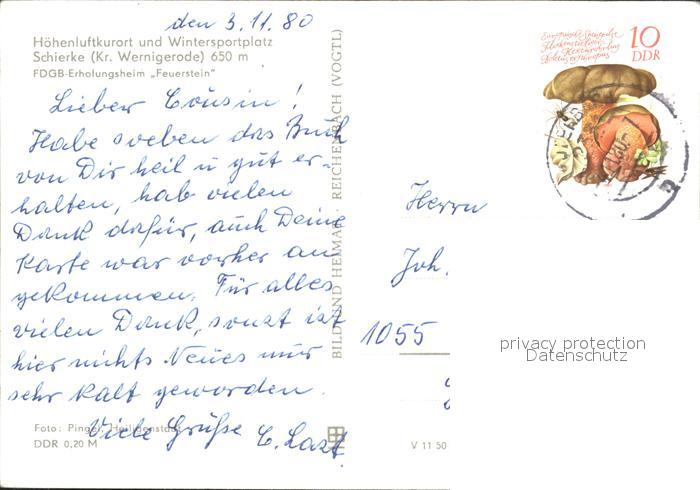 den 3.11.80
Höhenluftkurort und Wintersportplatz
Schierke (Kr. Wernigerode) 650 m
FDGB-Erholungsheim „Feuerstein"
Lieber Cousin!
Habe soeben das Buch
von Dir heil u gut er-
halten, hab vielen
Dank dafür, auch Deine
Karte war vorher an
gekommen. Für alles
vielen Dank, sonst ist
hier nichts Neues nur
sehr kalt geworden.
Viele Grüße C. Last
Foto: Pingel, Heiligenstadt
DDR 0,20 M
BILD UND HEIMAT REICHENBACH (VOGTL)
V 11 50
10
DDR
Herrn
Joh.
1055
privacy protection
Datenschutz